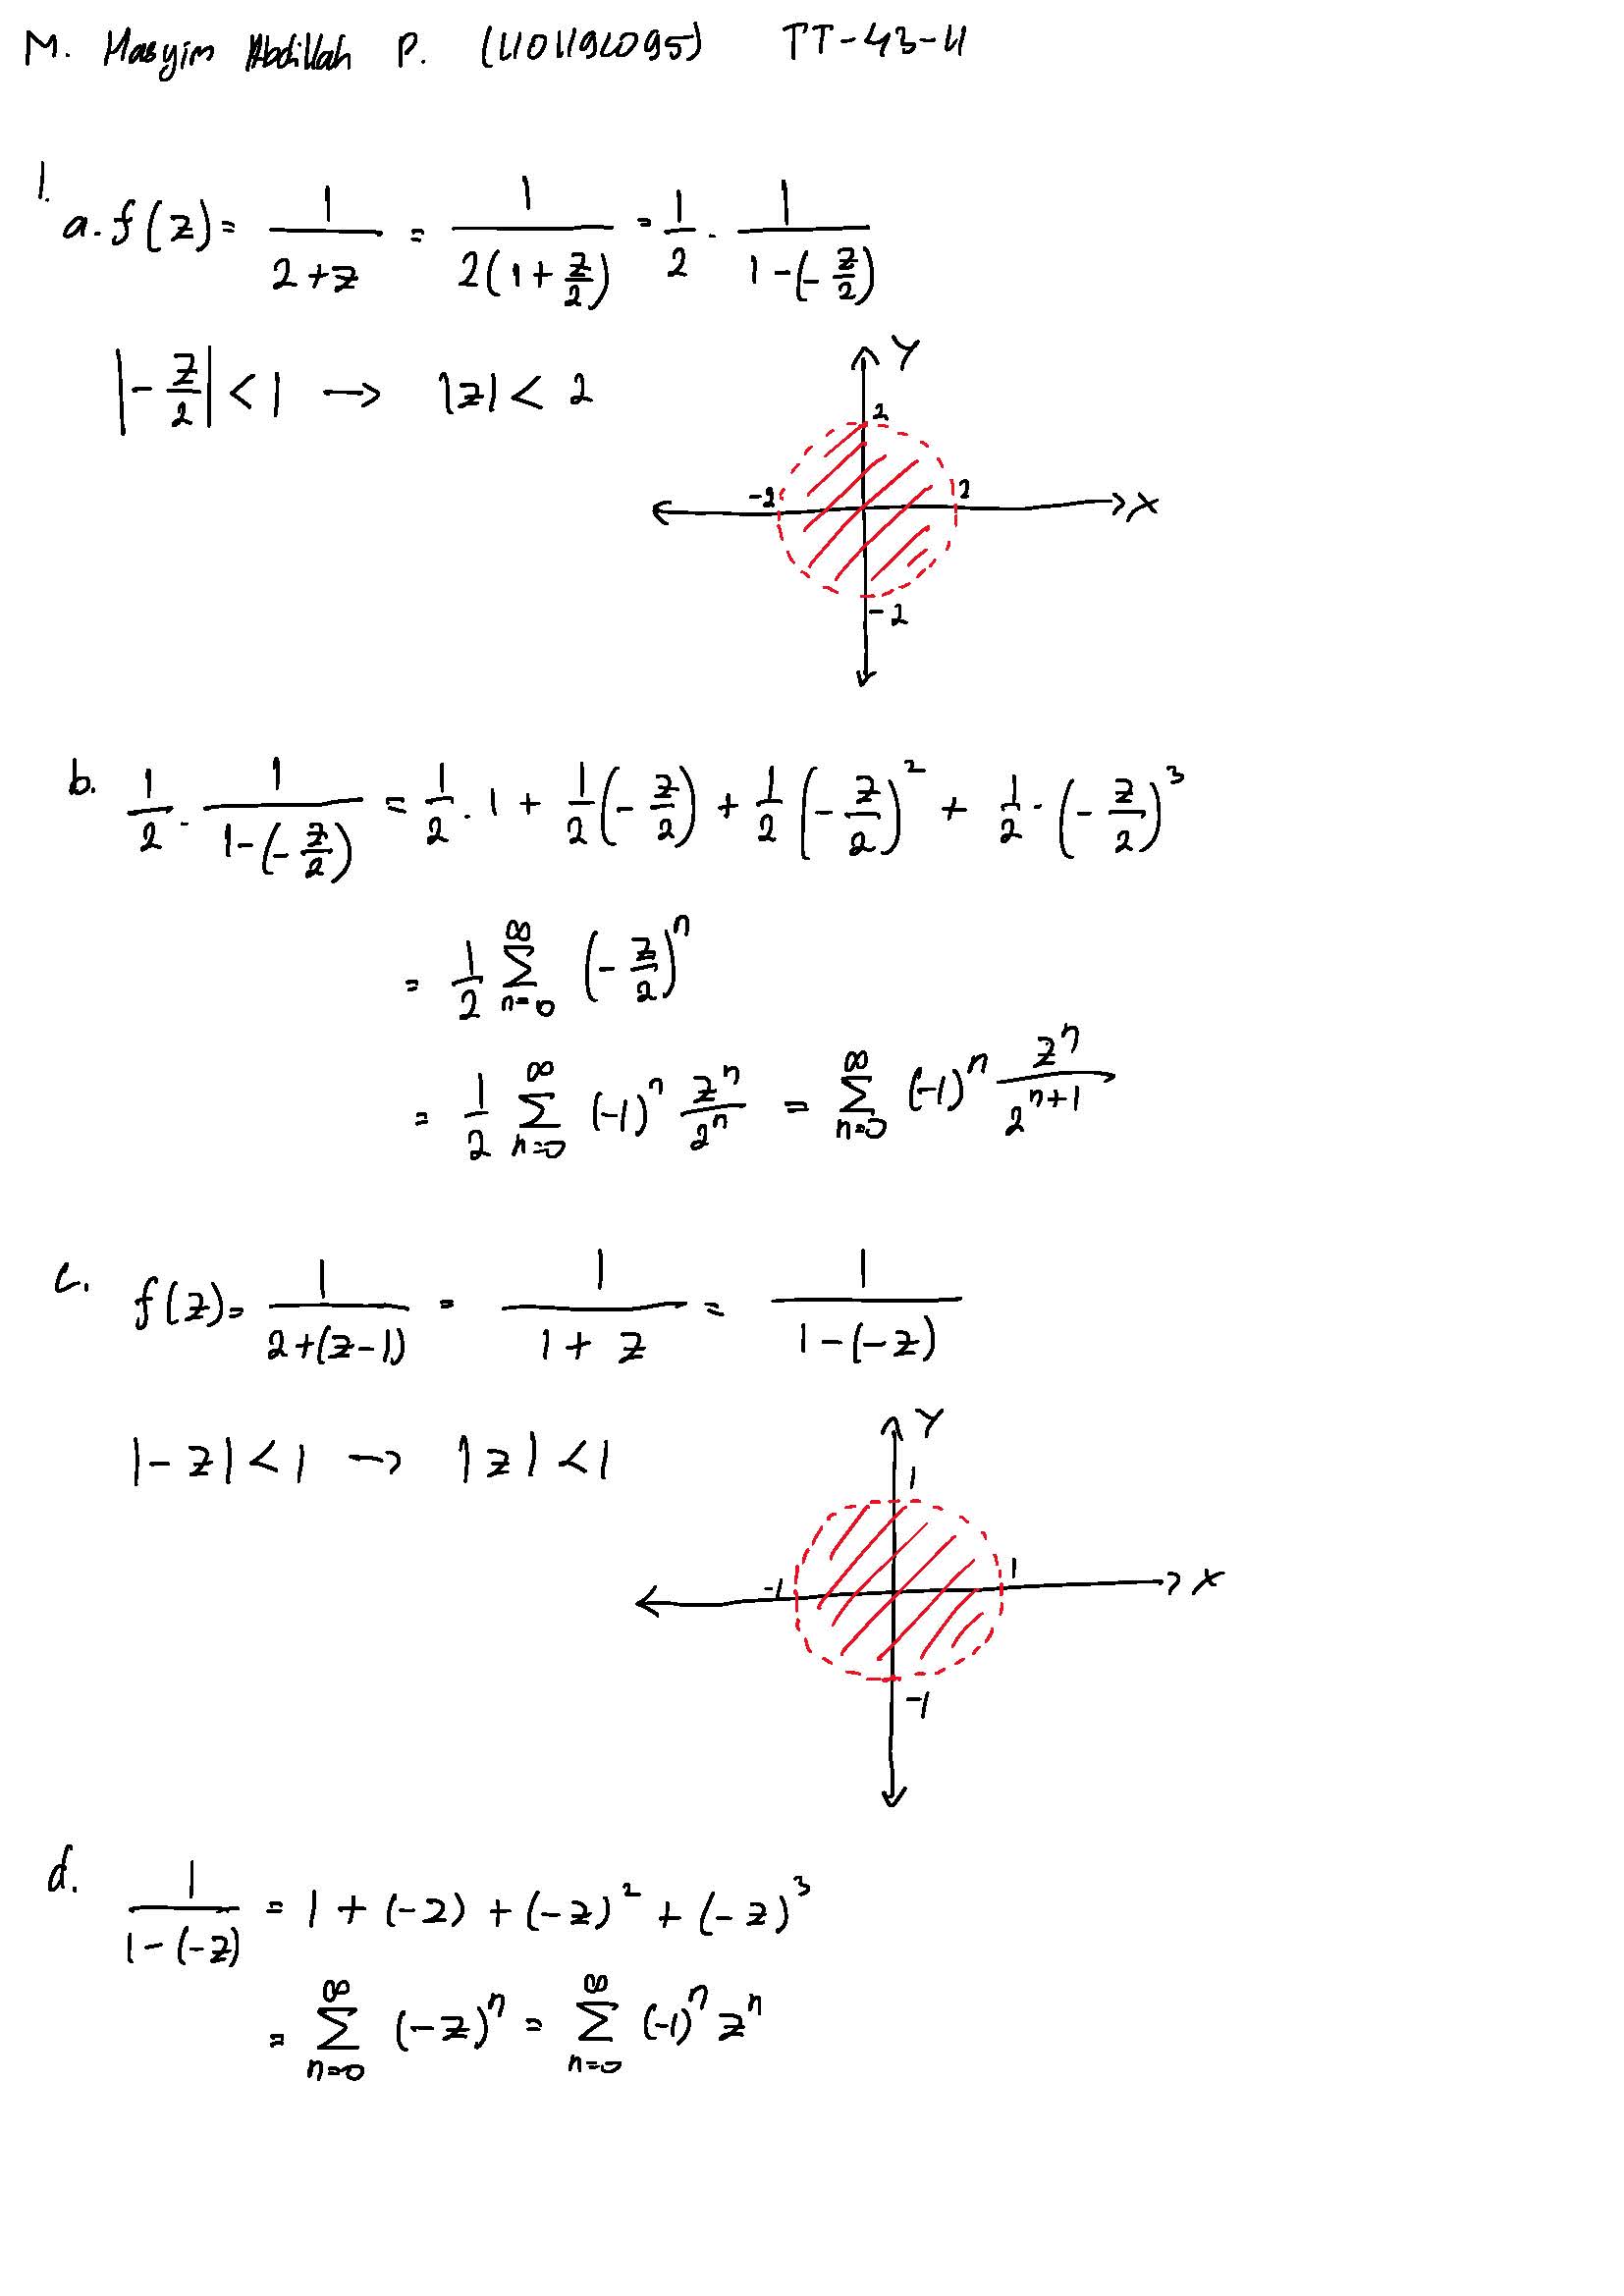 M. Hasyim Abdillah P. (1101190095) TT-43-11
1.
a. f(z) = 1/(2+z) = 1/(2(1+z/2)) = 1/2 · 1/(1-(-z/2))
|-z/2| < 1 → |z| < 2
Y
2
-2 2 X
-2
b. 1/2 · 1/(1-(-z/2)) = 1/2 · 1 + 1/2(-z/2) + 1/2(-z/2)² + 1/2 · (-z/2)³
= 1/2 ∑_{n=0}^{∞} (-z/2)^n
= 1/2 ∑_{n=0}^{∞} (-1)^n z^n/2^n = ∑_{n=0}^{∞} (-1)^n z^n/2^{n+1}
c. f(z) = 1/(2+(z-1)) = 1/(1+z) = 1/(1-(-z))
|-z| < 1 → |z| < 1
Y
1
-1 1 X
-1
d. 1/(1-(-z)) = 1 + (-2) + (-z)² + (-z)³
= ∑_{n=0}^{∞} (-z)^n = ∑_{n=0}^{∞} (-1)^n z^n